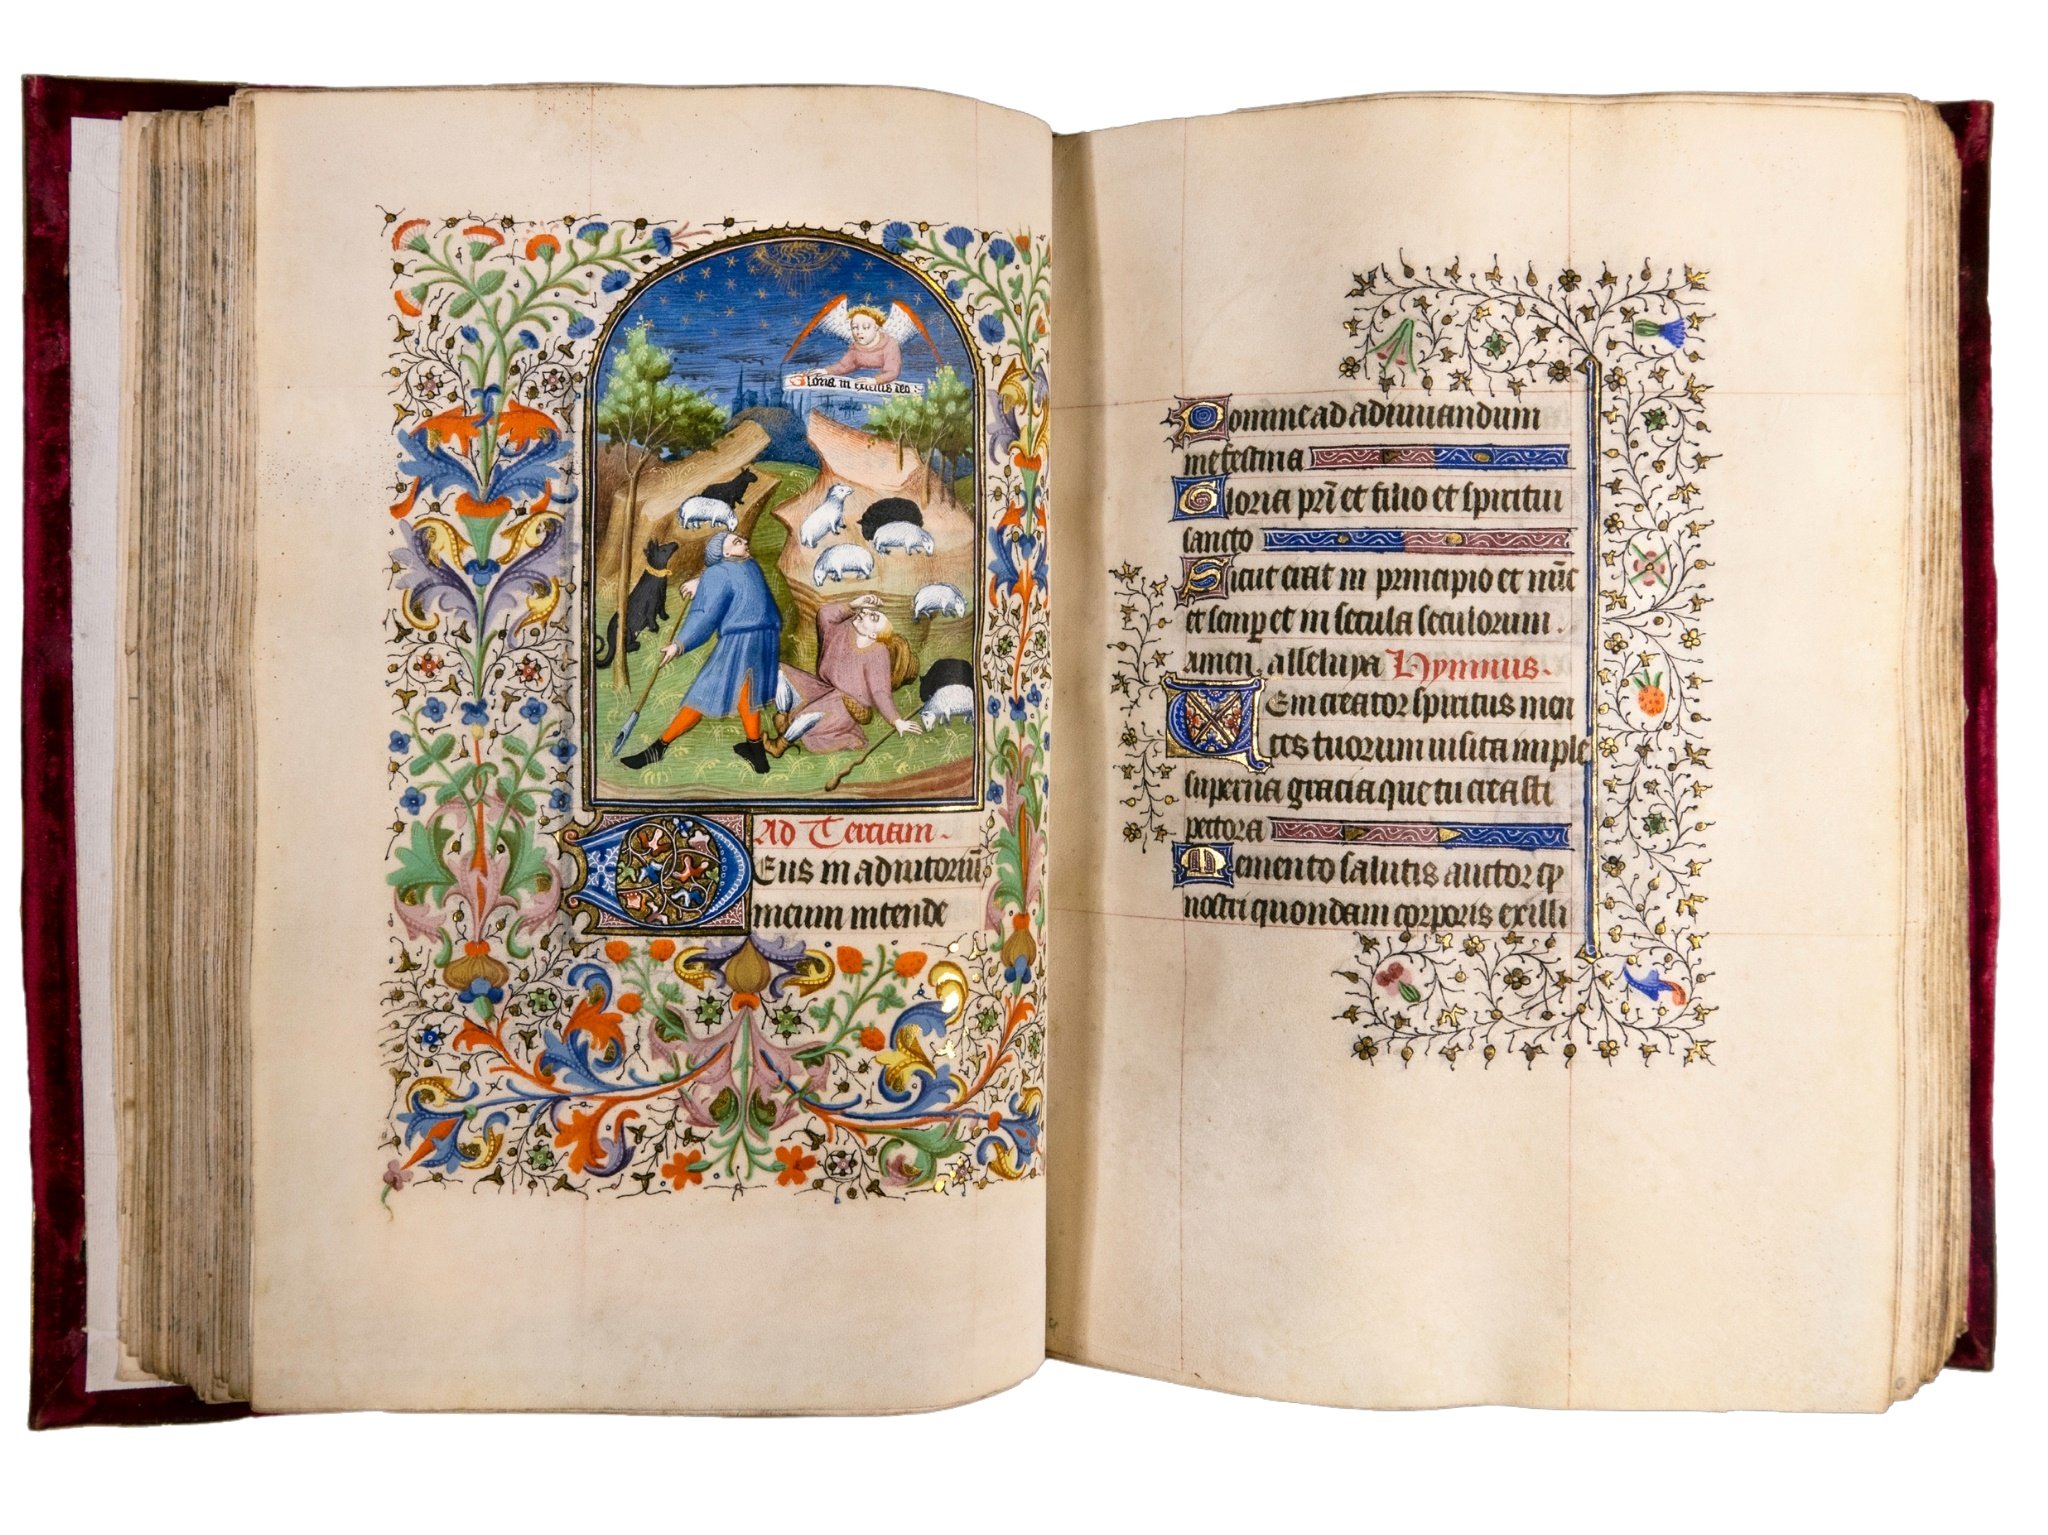 Gloria in excelsis deo
Ad Terciam
Deus in adiutoriũ
meum intende
Domine ad adiuvandum
me festina
Gloria pr̃i et filio et spiritui
sancto
Sicut erat in principio et nũc
et semp et in secula seculorum.
amen. alleluya Hymnus.
Veni creator spiritus men
tes tuorum visita imple
superna gracia que tu creasti
pectora
Memento salutis auctor qȝ
nostri quondam corporis exilli